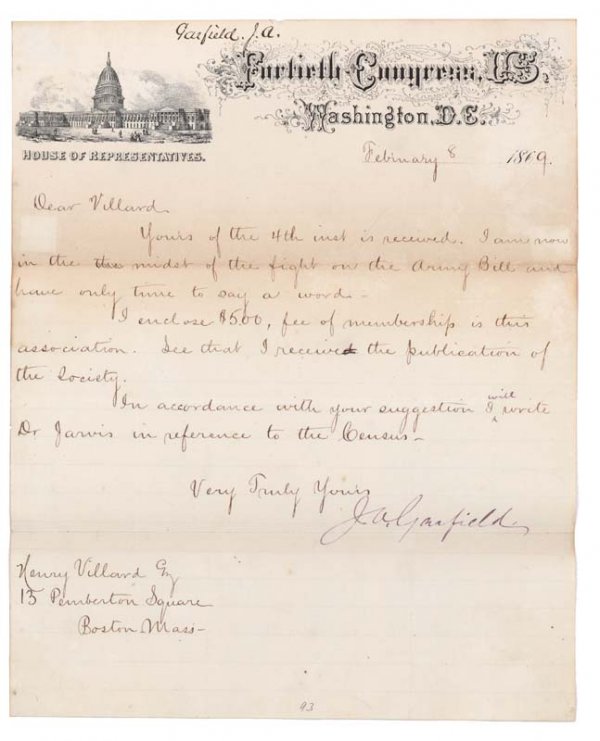 Garfield. J.A.
Fortieth Congress, U.S.
Washington, D.C.
HOUSE OF REPRESENTATIVES.
February 8 1869.
Dear Villard
Yours of the 4th inst is received. I am now
in the the midst of the fight on the Army Bill and
have only time to say a word -
I enclose $5.00, fee of membership is this
association. See that I received the publication of
the Society.
In accordance with your suggestion I will write
Dr Jarvis in reference to the Census -
Very Truly Yours
J.A. Garfield
Henry Villard Esq
15 Pemberton Square
Boston Mass -
93